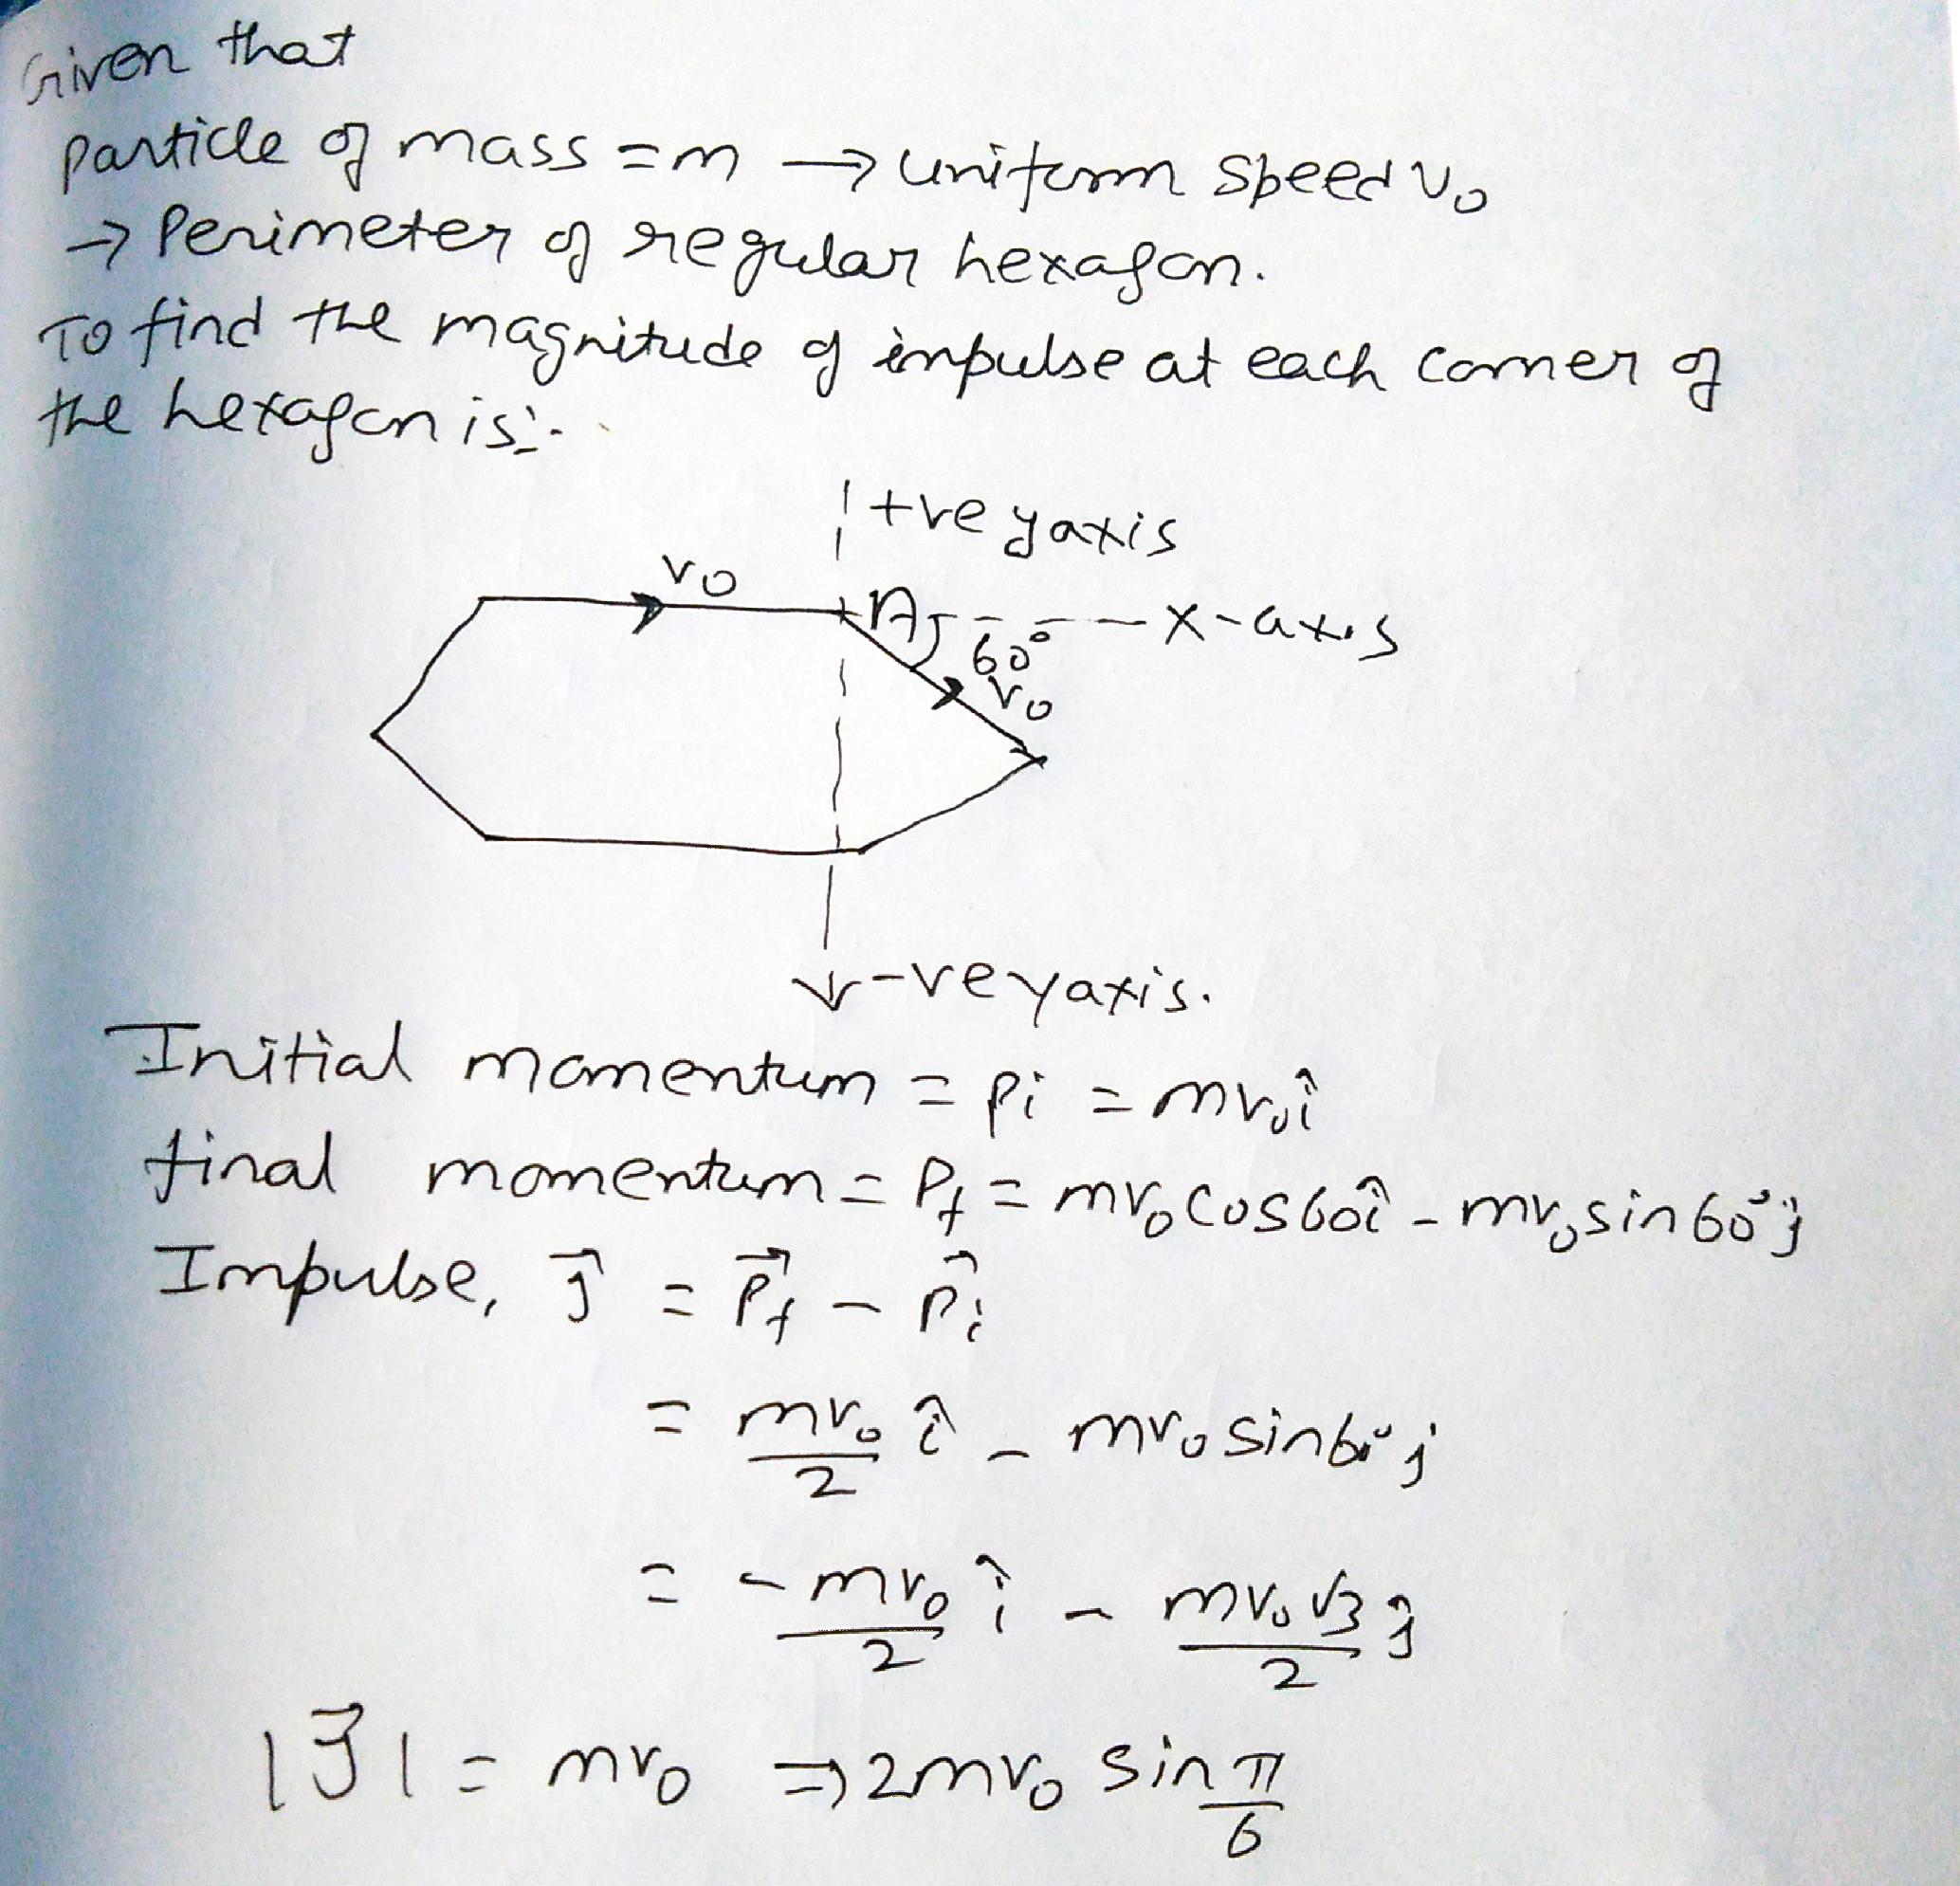 Given that
particle of mass = m → uniform speed v₀
→ Perimeter of regular hexagon.
To find the magnitude of impulse at each corner of
the hexagon is:-
+ve y axis
v₀
A
x-axis
60°
v₀
-ve y axis.
Initial momentum = pi = mv₀î
final momentum = Pf = mv₀cos60î - mv₀sin60°j
Impulse, J⃗ = P⃗f - P⃗i
= mv₀/2 î - mv₀sin60°j
= -mv₀/2 î - mv₀√3/2 ĵ
|J⃗| = mv₀ ⇒ 2mv₀ sin π/6